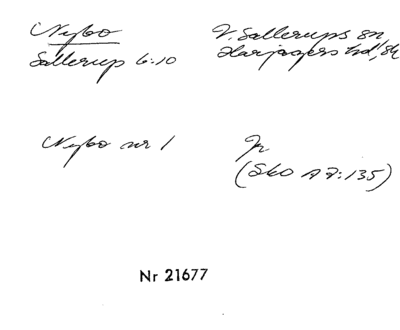 Nybo
Sallerup 6:10
V. Sallerups sn
Harjagers hd, Sk
Nybo nr 1
Fr
(Sko A 7:135)
Nr 21677